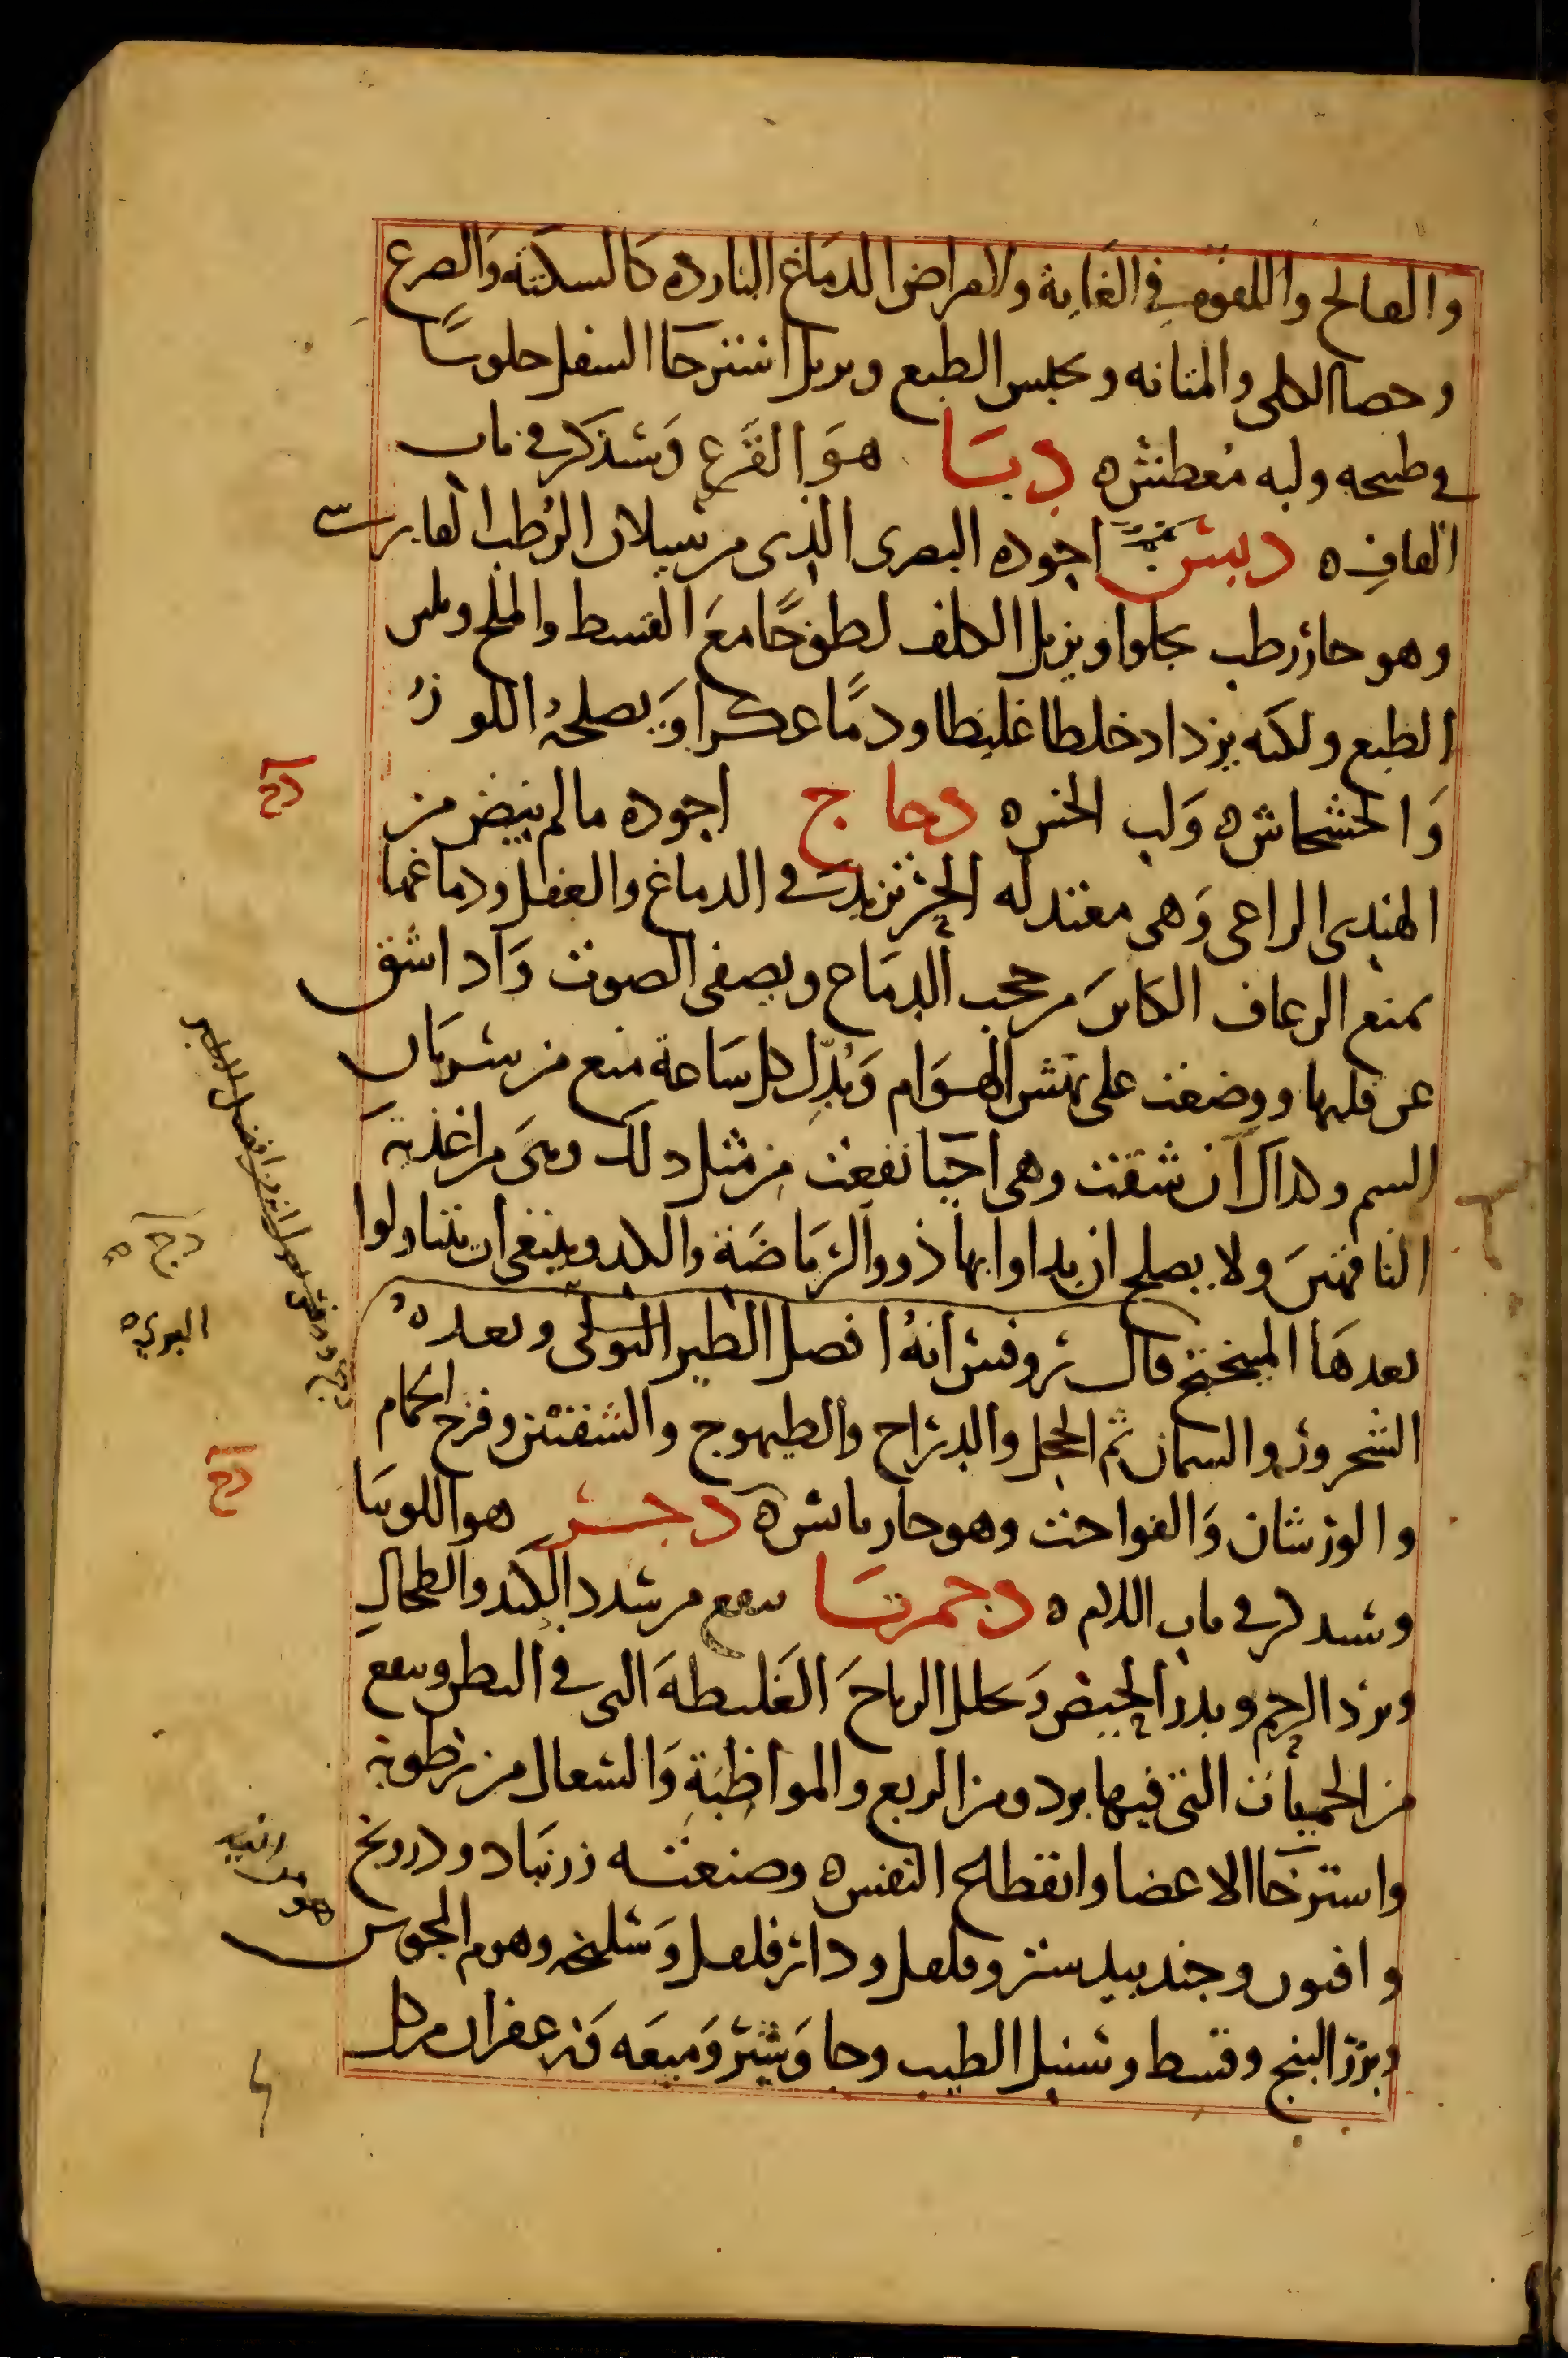 والفالج واللقوه في الغاية والامراض الدماغ الباردة كالسكتة والصرع
وحصا الكلى والمثانه ويحلبس الطبع ويزيل استرخا السفل جلوسًا
في طبيخه ولبه معطشه دبا هو القرع وسنذكر في باب
القاف ه دبس اجوده البصرى الذي من سيلان الرطب الفارسي
وهو حار رطب يجلوا ويزيل الكلف لطوخًا مع القسط والملح ويلين
الطبع ولكنه يزداد خلطا غليظا ودمًا عكرا ويصلحه اللوز
والخشخاش ه ولب الخس ه دجاج اجوده مالم يبيض من
الهندي الراعى وهى معتدله الحر تزيد في الدماغ والعقل ودماغها
يمنع الرعاف الكاين من حجب الدماغ ويصفى الصوت واذا شق
عن قلبها ووضعت على نهش الهوام وبدل كل ساعة منع من سريان
السم وكذلك ان شقت وهى احيا نفعت من مثل ذلك وهى من اغذية
الناقهين ولا يصلح ان يداوا بها ذووالرياضة والكد وينبغى ان يتناولوا
بعدها الميبختج قال روفس انه افضل الطير البوكى وبعده
الشحرور والسمان ثم الحجل والدراج والطيهوج والشفنين وفرخ الحمام
والورشان والفواخت وهو حار يابس ه دجر هو اللوبيا
وسنذكر في باب اللام ه دحمرتا ينفع من سدد الكبد والطحال
وبرد الرحم ويدر الحيض ويحلل الرياح الغليظة التى في البطن وينفع
من الحميات التى فيها برد ومن الربع والمواظبة والسعال من رطوبة
واسترخا الاعضا وانقطاع النفس ه وصنعته زرنباد ودرونج
وافيون وجندبيدستر وفلفل ودارفلفل وسليخه وهوم المجوس
وبزر البنج وقسط وسنبل الطيب وجاوشير وميعه وزعفران من كل